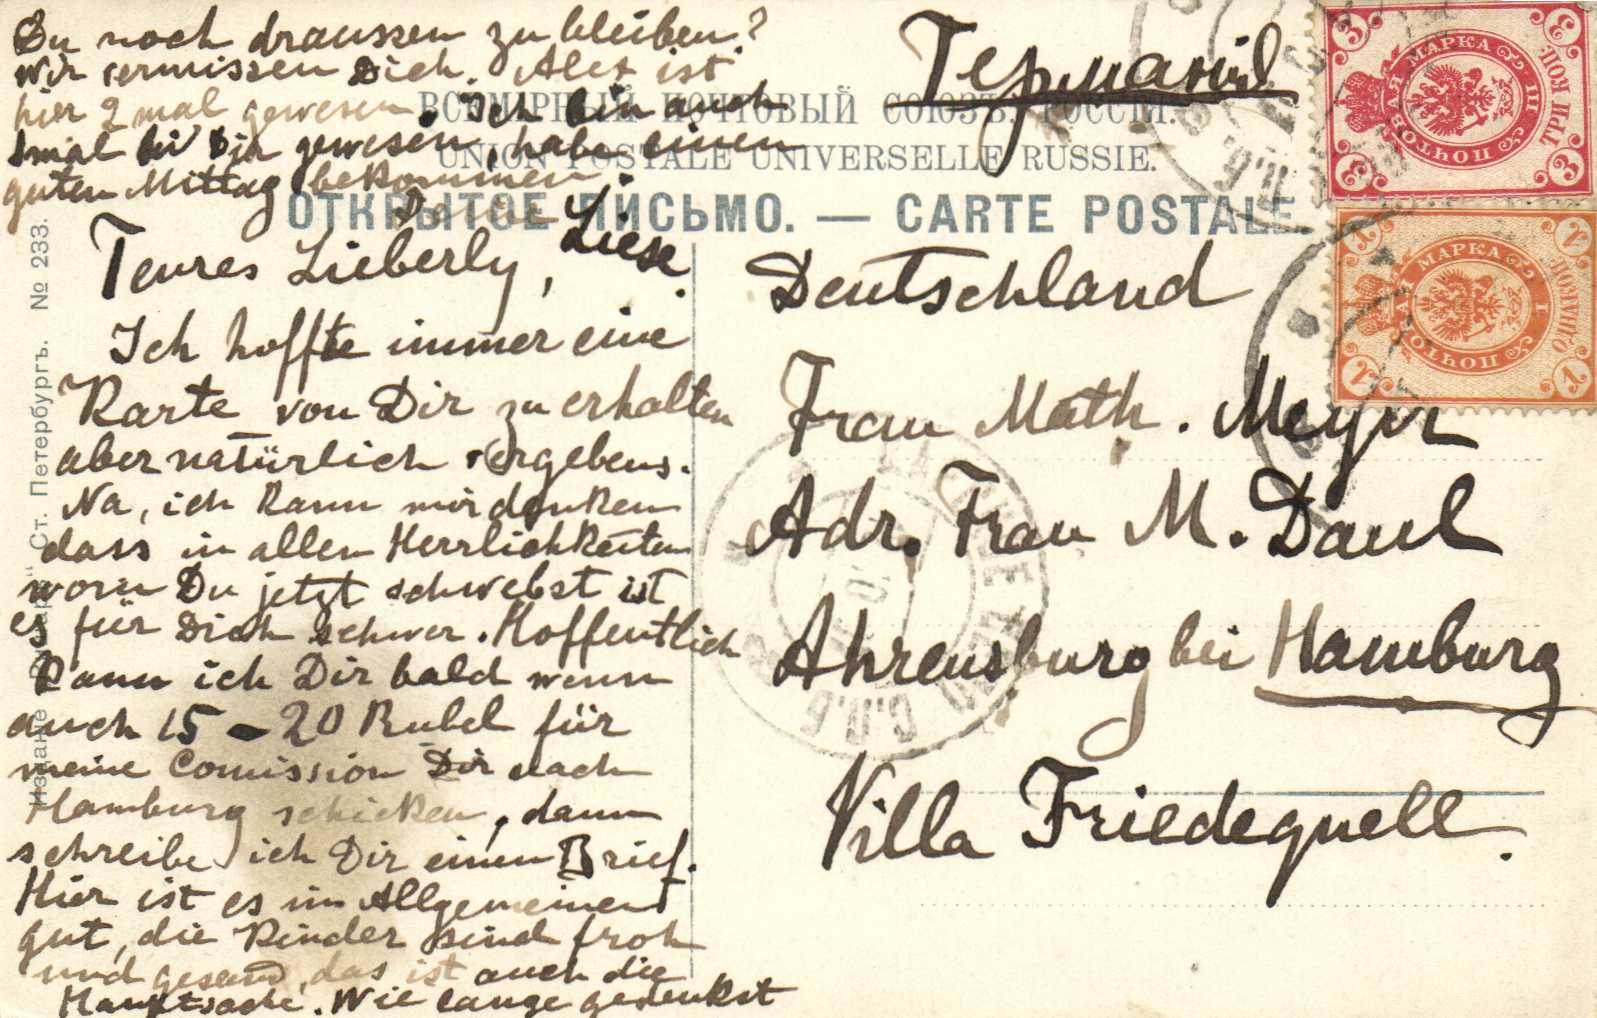 Du noch draussen zu bleiben?
Wir vermissen Dich. Alex ist
hier 2 mal gewesen. Ich bin auch
1mal bei Dir gewesen, habe einen
guten Mittag bekommen.
Deine Liese.
Teures Lieberly,
Ich hoffte immer eine
Karte von Dir zu erhalten
aber natürlich vergebens.
Na, ich kann mir denken
dass in allen Herrlichkeiten
worin Du jetzt schwebst ist
es für Dich schwer. Hoffentlich
kann ich Dir bald wenn
auch 15 - 20 Rubel für
meine Comission Dir nach
Hamburg schicken, dann
schreibe ich Dir einen Brief.
Hier ist es im Allgemeinen
gut, die Kinder sind froh
und gesund, das ist auch die
Hauptsache. Wie lange gedenkst
ВСЕМІРНЫЙ ПОЧТОВЫЙ СОЮЗЪ. РОССІЯ.
UNION POSTALE UNIVERSELLE RUSSIE.
ОТКРЫТОЕ ПИСЬМО. — CARTE POSTALE
Германія
Deutschland
Frau Math. Meyer
Adr. Frau M. Daul
Ahrensburg bei Hamburg
Villa Friedequell.
Ст. Петербургъ. № 233.
ПОЧТОВАЯ МАРКА
3 КОП. ТРИ
ПОЧТОВАЯ МАРКА
1 ОДНА КОП.
С.П.Б.